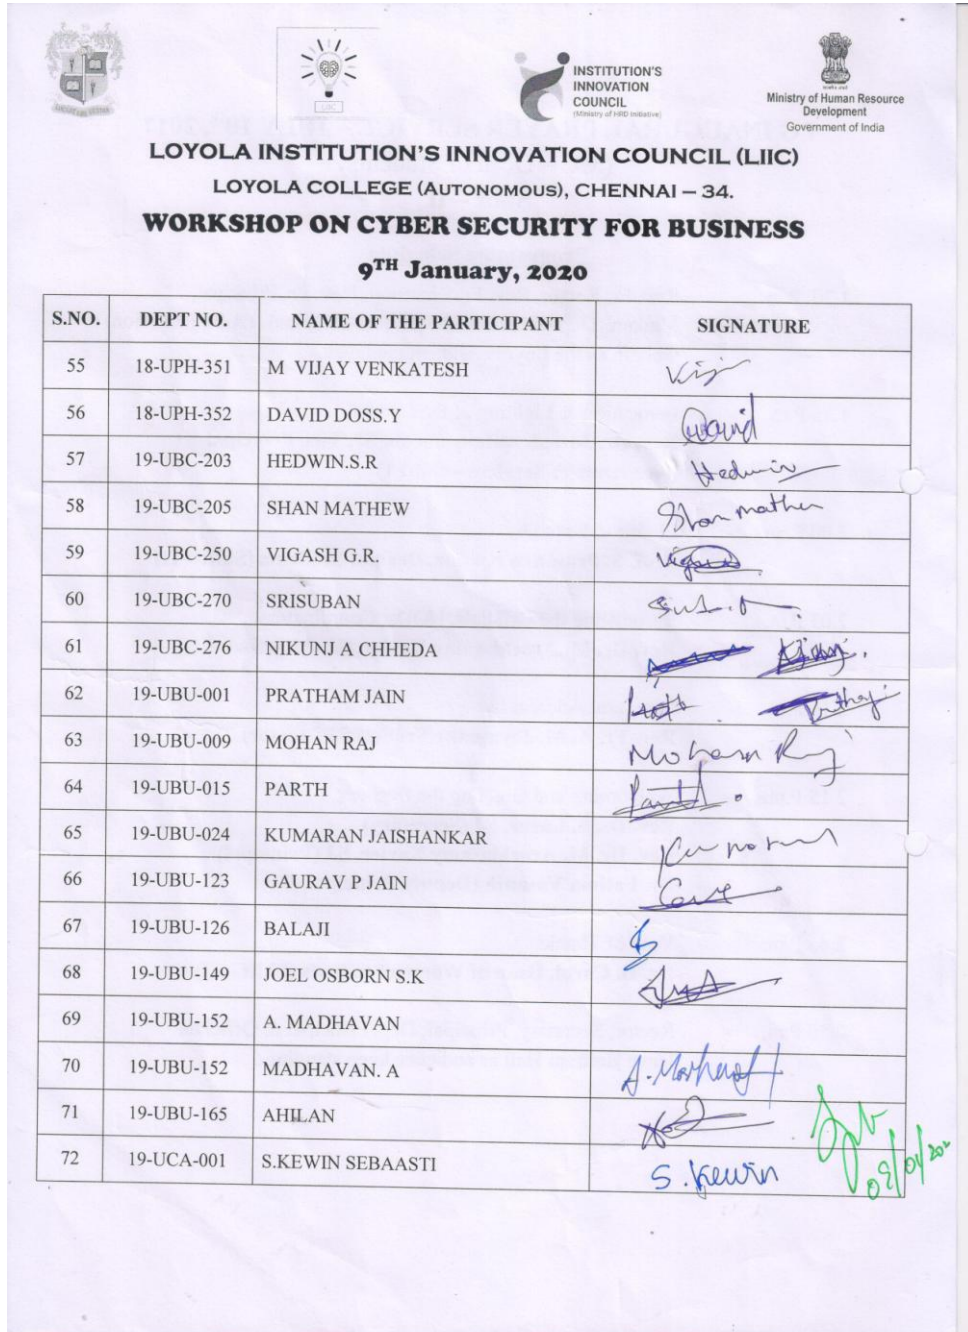 LIIC
INSTITUTION'S
INNOVATION
COUNCIL
(Ministry of HRD Initiative)
Ministry of Human Resource
Development
Government of India
LOYOLA INSTITUTION'S INNOVATION COUNCIL (LIIC)
LOYOLA COLLEGE (AUTONOMOUS), CHENNAI – 34.
WORKSHOP ON CYBER SECURITY FOR BUSINESS
9TH January, 2020
S.NO. DEPT NO. NAME OF THE PARTICIPANT SIGNATURE
55 18-UPH-351 M VIJAY VENKATESH
56 18-UPH-352 DAVID DOSS.Y David
57 19-UBC-203 HEDWIN.S.R Hedwin
58 19-UBC-205 SHAN MATHEW Shan mathew
59 19-UBC-250 VIGASH G.R. Vigash
60 19-UBC-270 SRISUBAN
61 19-UBC-276 NIKUNJ A CHHEDA
62 19-UBU-001 PRATHAM JAIN
63 19-UBU-009 MOHAN RAJ Mohan Raj
64 19-UBU-015 PARTH Parth
65 19-UBU-024 KUMARAN JAISHANKAR
66 19-UBU-123 GAURAV P JAIN
67 19-UBU-126 BALAJI
68 19-UBU-149 JOEL OSBORN S.K
69 19-UBU-152 A. MADHAVAN
70 19-UBU-152 MADHAVAN. A
71 19-UBU-165 AHILAN
72 19-UCA-001 S.KEWIN SEBAASTI S. Kewin